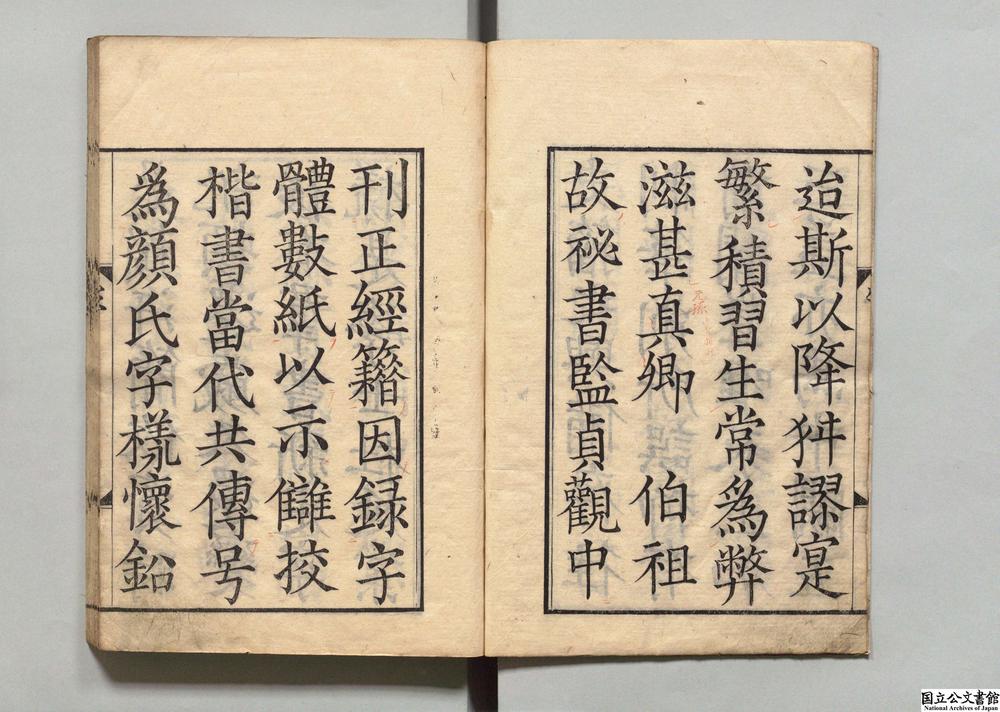 迨斯以降舛謬寔
繁積習生常爲弊
滋甚真卿伯祖
故祕書監貞觀中
刊正經籍因録字
體數紙以示讎挍
楷書當代共傳号
爲顔氏字㨾懷鉛
国立公文書館
National Archives of Japan